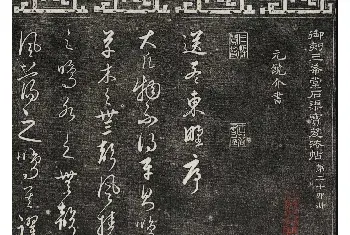 御刻三希堂石渠寶笈法帖第二十四冊
元饒介書
送孟東野序
大凡物不得平則鳴
草木之無聲風撓
之鳴水之無聲
風蕩之鳴其躍